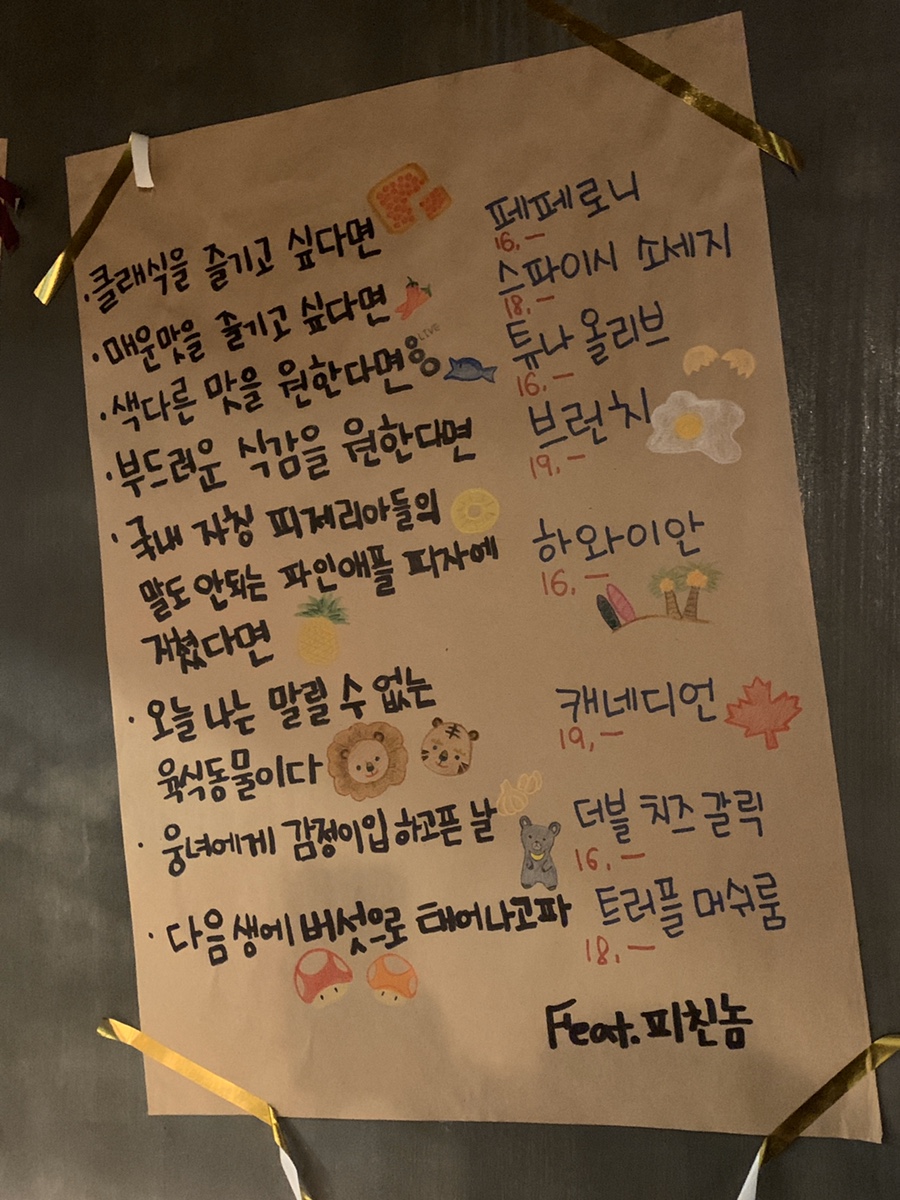 ·클래식을 즐기고 싶다면
페페로니
16.-
·매운맛을 즐기고 싶다면
스파이시 소세지
18.-
·색다른 맛을 원한다면
LIVE
튜나 올리브
16.-
·부드러운 식감을 원한다면
브런치
19.-
·국내 자칭 피제리아들의
말도 안되는 파인애플 피자에
지쳤다면
하와이안
16.-
·오늘 나는 말릴 수 없는
육식동물이다
캐네디언
19.-
·웅녀에게 감정이입 하고픈 날
더블 치즈 갈릭
16.-
·다음 생에 버섯으로 태어나고파
트러플 머쉬룸
18.-
Feat. 피친놈